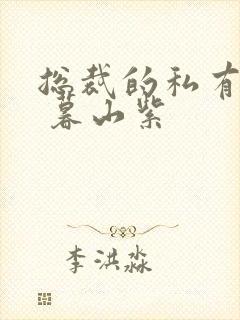 总裁的私有
暮山紫
李洪淼